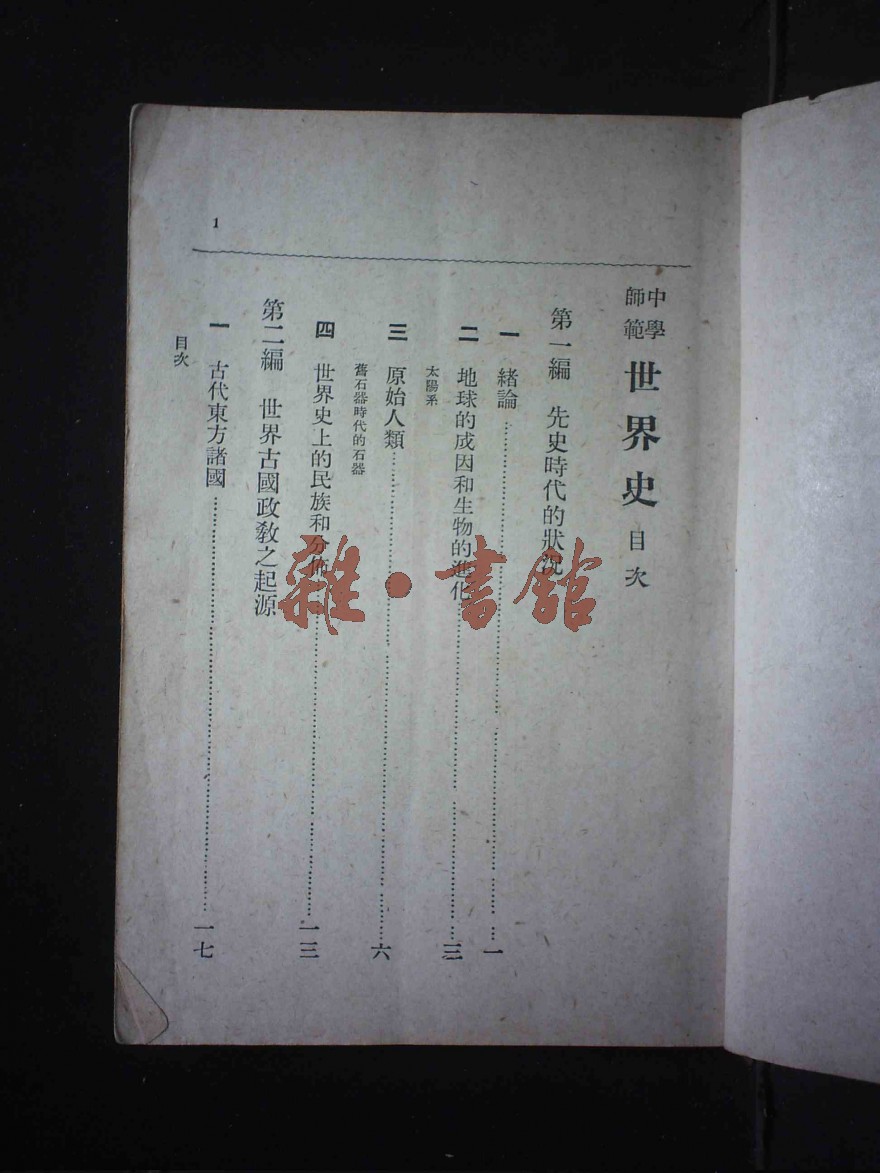 中學師範 世界史 目次
第一編 先史時代的狀況
一 緒論……一
二 地球的成因和生物的進化……三
太陽系
三 原始人類……六
舊石器時代的石器
四 世界史上的民族和分佈……一三
第二編 世界古國政教之起源
一 古代東方諸國……一七
目次
1
雜·書館